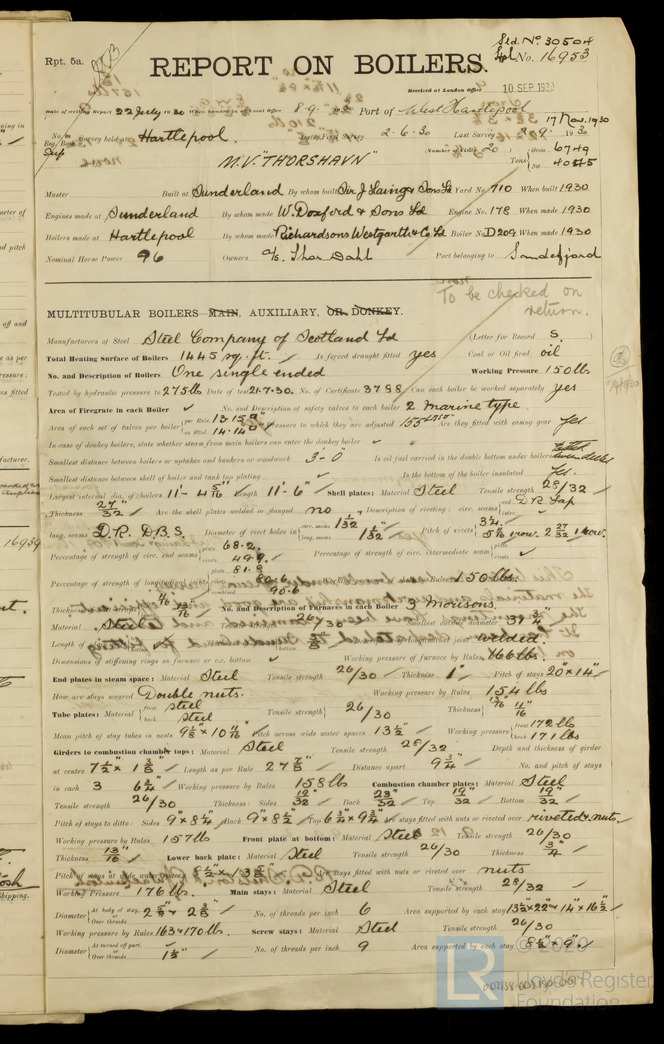 Sld. No. 30504
Rpt. 5a.
REPORT ON BOILERS.
No. 16953
Received at London Office
10 SEP 1930
Date of writing Report 22 July 1930 When handed in at Local Office 8.9.1930 Port of West Hartlepool
17 Nov. 1930
No. in Reg. Book Survey held at Hartlepool. Date, First Survey 2.6.30 Last Survey 1930
Sup
M.V. "THORSHAVN" (Number of Visits 20) Tons Gross 6749
Net 4045
Master Built at Sunderland By whom built Sir J Laing & Sons Ld Yard No. 710 When built 1930
Engines made at Sunderland By whom made W. Doxford & Sons Ld Engine No. 178 When made 1930
Boilers made at Hartlepool By whom made Richardsons Westgarth & Co Ld Boiler No. D209 When made 1930
Nominal Horse Power 96 Owners A/S. Thor Dahl Port belonging to Sandefjord
To be checked on return.
MULTITUBULAR BOILERS MAIN, AUXILIARY, OR DONKEY.
Manufacturers of Steel Steel Company of Scotland Ld (Letter for Record S.)
Total Heating Surface of Boilers 1445 sq. ft. Is forced draught fitted yes Coal or Oil fired oil
No. and Description of Boilers One single ended Working Pressure 150 lbs
Tested by hydraulic pressure to 275 lb Date of test 21.7.30. No. of Certificate 3798 Can each boiler be worked separately yes
Area of Firegrate in each Boiler No. and Description of safety valves to each boiler 2 marine type
Area of each set of valves per boiler per Rule 13.15
as fitted 14.14 Pressure to which they are adjusted 155 Are they fitted with easing gear Yes
In case of donkey boilers, state whether steam from main boilers can enter the donkey boiler
Smallest distance between boilers or uptakes and bunkers or woodwork 3'-0" Is oil fuel carried in the double bottom under boilers
Smallest distance between shell of boiler and tank top plating In the bottom of the boiler insulated Yes.
Largest internal dia. of boilers 11'- 4 5/16" Length 11'- 6" Shell plates: Material Steel Tensile strength 28/32
Thickness 27/32" Are the shell plates welded or flanged no Description of riveting: circ. seams end DR Lap
long. seams D.R. D.B.S. Diameter of rivet holes in circ. seams 1 1/32" long. seams 1 1/32" Pitch of rivets
Percentage of strength of circ. end seams plate 68.2. rivets 49.9. Percentage of strength of circ. intermediate seam
Percentage of strength of longitudinal joint plate 81.8 rivets 80.6 combined 90.6 Working pressure of shell by Rules 150 lbs.
No. and Description of Furnaces in each Boiler 3 Morisons.
Material Steel Tensile strength 26/30 Smallest outside diameter
Length of plain part bottom Description of longitudinal joint welded.
Dimensions of stiffening rings on furnace or c.c. bottom Working pressure of furnace by Rules 166 lbs.
End plates in steam space: Material Steel Tensile strength 26/30 Thickness 1" Pitch of stays 20" x 14"
How are stays secured Double nuts. Working pressure by Rules 154 lbs
Tube plates: Material front steel back Steel Tensile strength 26/30 Thickness 13/16" 11/16"
Mean pitch of stay tubes in nests Pitch across wide water spaces 13 1/2" Working pressure front 172 lbs back 171 lbs
Girders to combustion chamber tops: Material Steel Tensile strength 28/32 Depth and thickness of girder
at centre Length as per Rule 27 7/8" Distance apart 9 3/4" No. and pitch of stays
in each 3 6 3/4" Working pressure by Rules 158 lbs Combustion chamber plates: Material Steel
Tensile strength 26/30 Thickness: Sides 19/32" Back 23/32" Top 19/32" Bottom 19/32"
Pitch of stays to ditto: Sides 9" x 8 1/4" Back 9" x 8 1/2" Top 6 3/4" x 9 3/4" Are stays fitted with nuts or riveted over riveted & nuts.
Working pressure by Rules 157 lb Front plate at bottom: Material Steel Tensile strength 26/30
Thickness 13/16" Lower back plate: Material Steel Tensile strength 26/30 Thickness 3/4"
Pitch of stays at wide water space Are stays fitted with nuts or riveted over nuts
Working Pressure 176 lb. Main stays: Material Steel Tensile strength 28/32
Diameter At body of stay, Over threads No. of threads per inch 6 Area supported by each stay 13 1/2" x 22" + 14" x 16 1/2"
Working pressure by Rules 163 & 170 lb. Screw stays: Material Steel Tensile strength 26/30
Diameter At turned off part, Over threads 1 1/2" No. of threads per inch 9 Area supported by each stay 8 1/2" x 9"
© 2020
Lloyd's Register
Foundation
LR